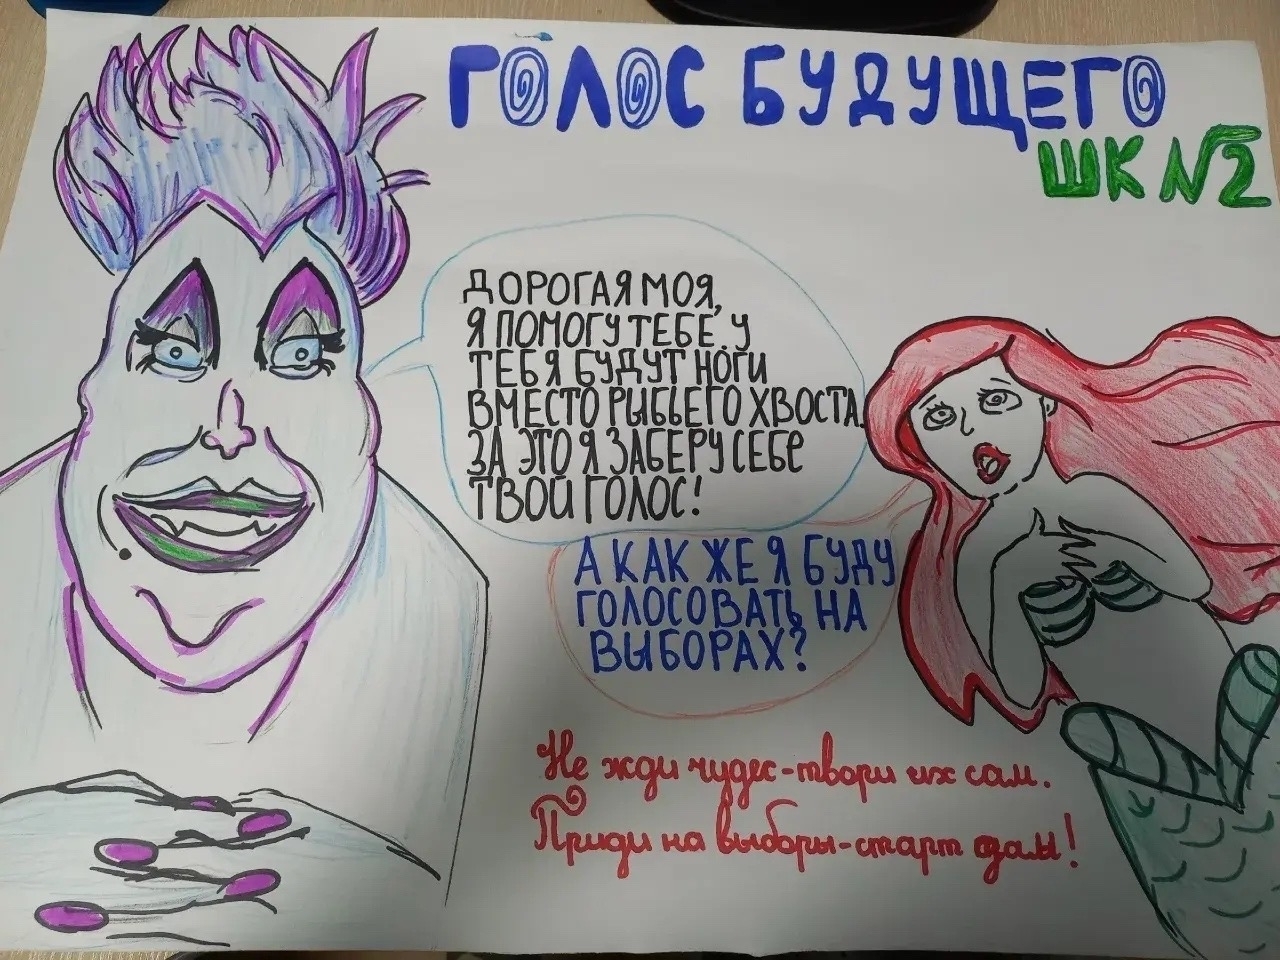 ГОЛОС БУДУЩЕГО
ШК №2
ДОРОГАЯ МОЯ,
Я ПОМОГУ ТЕБЕ. У
ТЕБЯ БУДУТ НОГИ
ВМЕСТО РЫБЬЕГО ХВОСТА.
ЗА ЭТО Я ЗАБЕРУ СЕБЕ
ТВОЙ ГОЛОС!
А КАК ЖЕ Я БУДУ
ГОЛОСОВАТЬ НА
ВЫБОРАХ?
Не жди чудес-твори их сам.
Приди на выборы-старт дам!